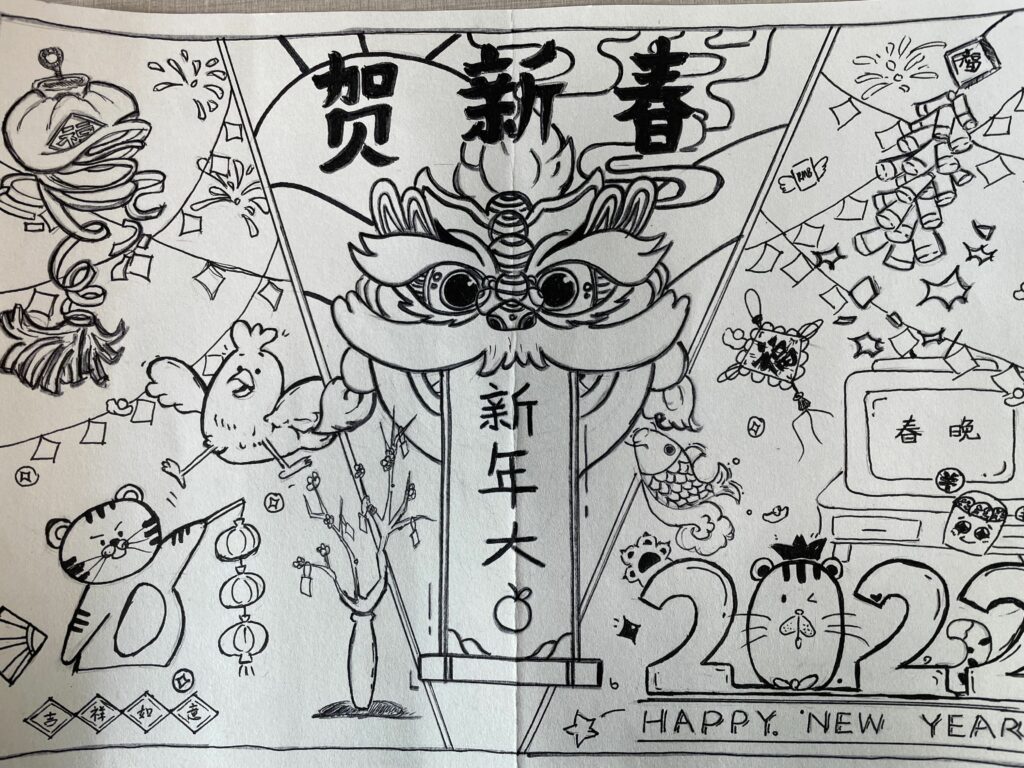 贺新春
福
RMB
新年大
福
春晚
2022
HAPPY. NEW YEAR
吉祥如意